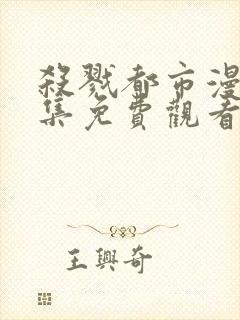 殺戮都市漫
集免費觀看
王興奇